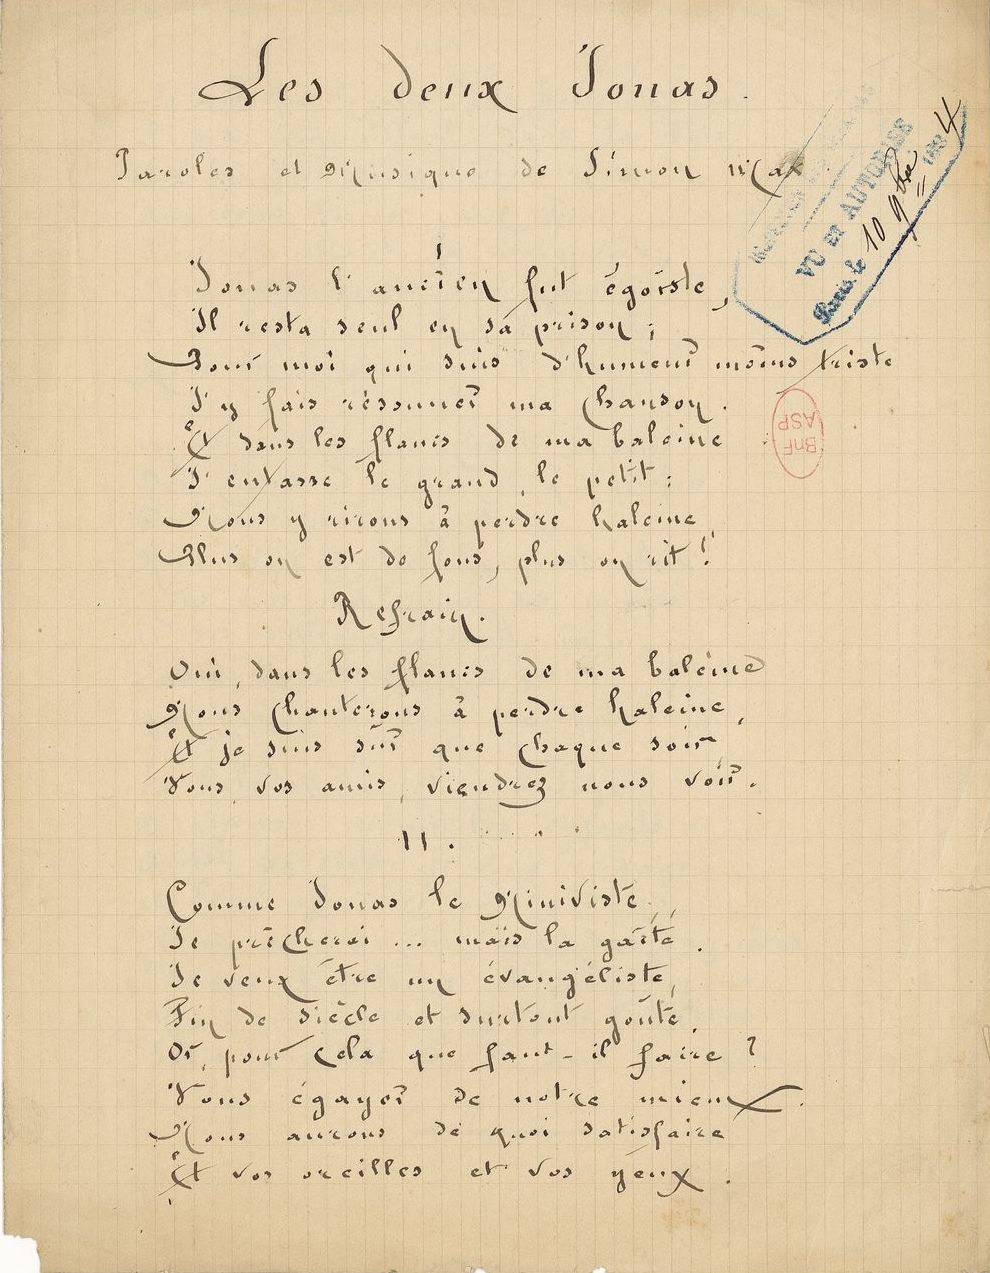 Les deux Jonas.
Paroles et Musique de Simon Max.
I
Jonas l'ancien fut égoïste,
Il resta seul en sa prison ;
Pour moi qui suis d'humeur moins triste
J'y fais résonner ma chanson.
Et dans les flancs de ma baleine
J'entasse le grand, le petit :
Nous y rirons à perdre haleine,
Plus on est de fous, plus on rit !
Refrain.
Oui, dans les flancs de ma baleine
Nous chanterons à perdre haleine,
Et je suis sûr que chaque soir,
Vous, vos amis, viendrez nous voir.
II.
Comme Jonas le Niniviste,
Je prêcherai ... mais la gaîté.
Je veux être un évangéliste,
Fin de siècle et surtout goûté,
Or, pour cela que faut-il faire ?
Vous égayer de notre mieux.
Nous aurons de quoi satisfaire
Et vos oreilles et vos yeux.
VU ET AUTORISÉ
Paris, le 10 9bre 1894
BnF
ASP